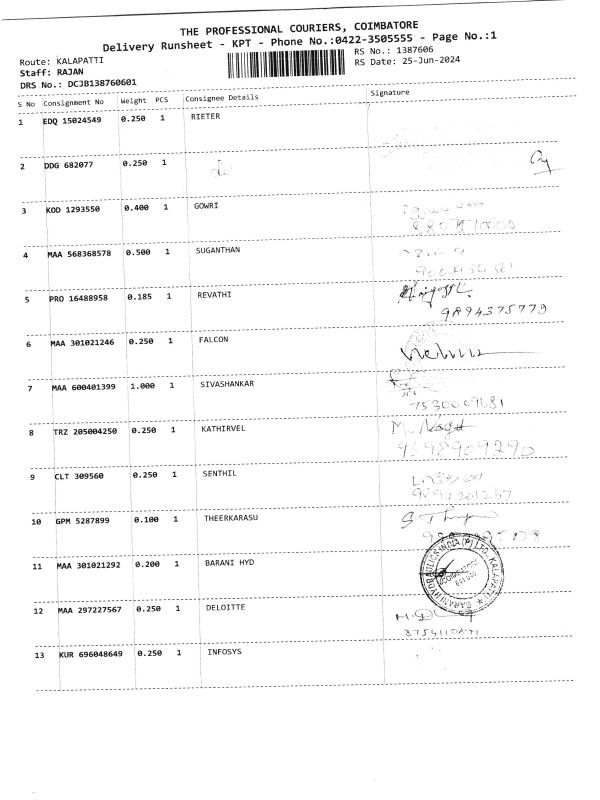 THE PROFESSIONAL COURIERS, COIMBATORE
Delivery Runsheet - KPT - Phone No.:0422-3505555 - Page No.:1
Route: KALAPATTI
RS No.: 1387606
Staff: RAJAN
RS Date: 25-Jun-2024
DRS No.: DCJB138760601
S No Consignment No Weight PCS Consignee Details Signature
1 EDQ 15024549 0.250 1 RIETER
2 DDG 682077 0.250 1
3 KOD 1293550 0.400 1 GOWRI
4 MAA 568368578 0.500 1 SUGANTHAN
5 PRO 16488958 0.185 1 REVATHI
9894375779
6 MAA 301021246 0.250 1 FALCON
7 MAA 600401399 1.000 1 SIVASHANKAR
7530009681
8 TRZ 205004250 0.250 1 KATHIRVEL
9698909290
9 CLT 309560 0.250 1 SENTHIL
10 GPM 5287899 0.100 1 THEERKARASU
11 MAA 301021292 0.200 1 BARANI HYD
BARANI HYDRAULICS INDIA (P) LTD. KALAPATTI
12 MAA 297227567 0.250 1 DELOITTE
13 KUR 696048649 0.250 1 INFOSYS